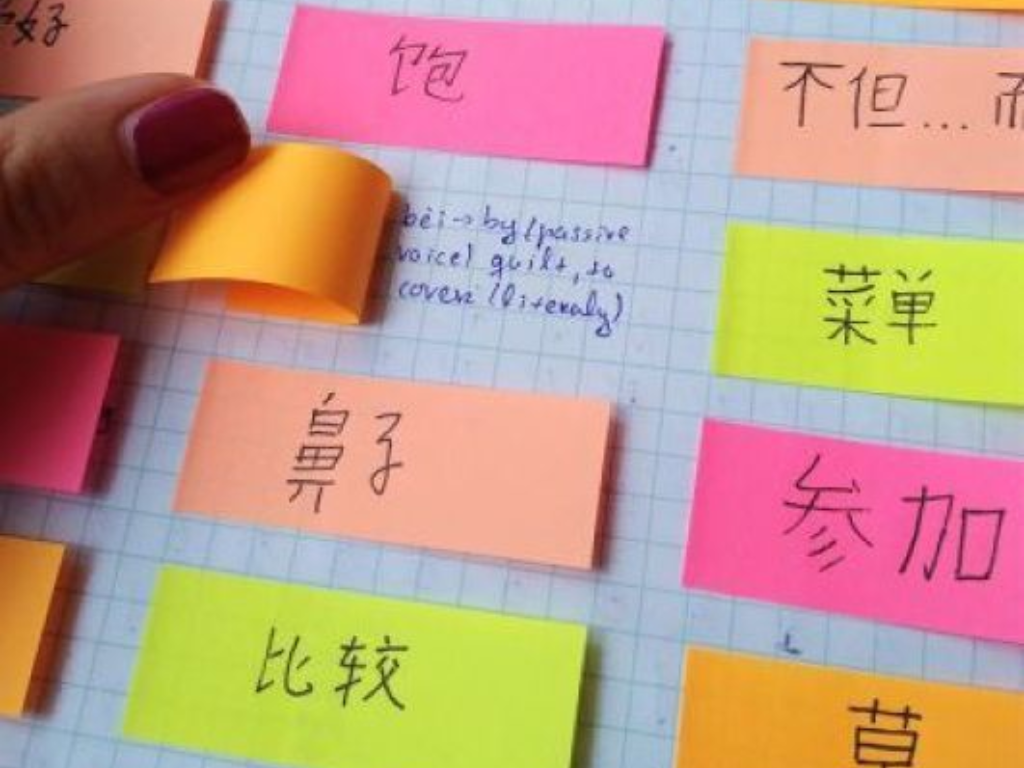 好
饱
不但...
bèi → by (passive
voice) guilt, to
cover (literaly)
菜单
鼻子
参加
比较